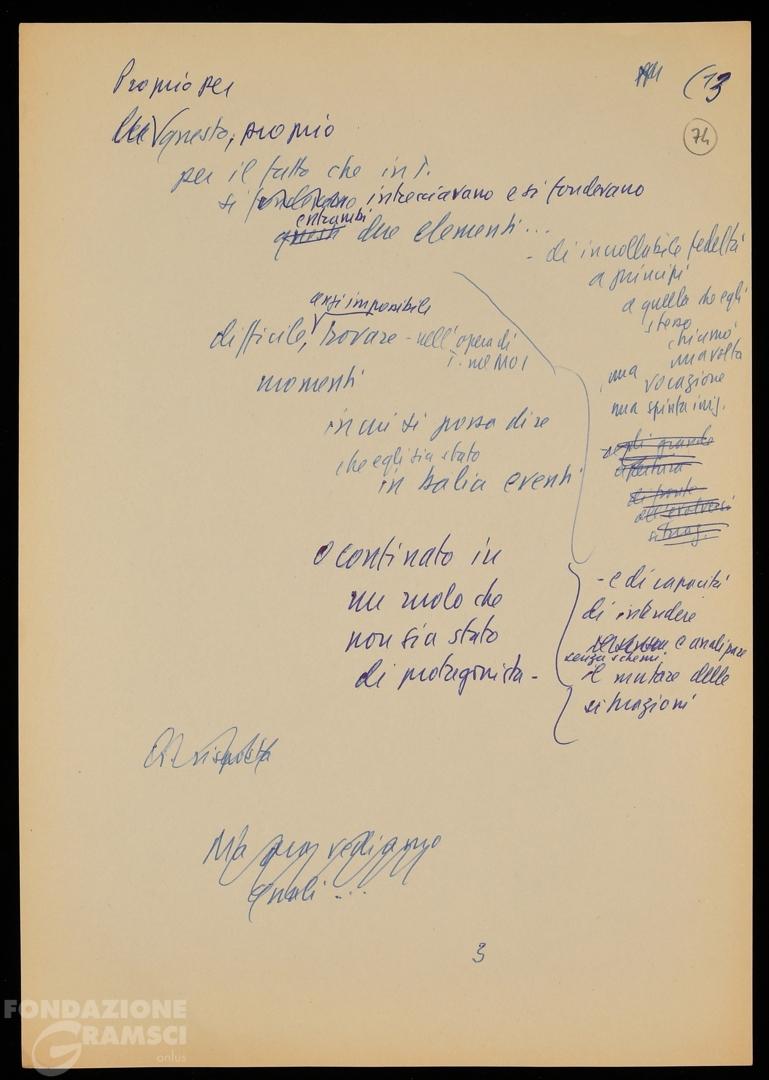 Proprio per
(13
74
questo, proprio
per il fatto che in T.
si intrecciavano e si fondevano
entrambi
questi due elementi...
- di incrollabile fedeltà
a principi
a quella che egli
stesso
chiamò
una volta
una vocazione
una spinta
anzi impossibile
difficile, trovare - nell'opera di
T. nel MOI
momenti
in cui si possa dire
che egli sia stato
in Italia eventi
apertura
di fronte
all'evolversi
situaz.
o confinato in
un ruolo che
non sia stato
di protagonista -
- e di capacità
di intendere
e analizzare
senza schemi
il mutare delle
situazioni
Ma poi vediamo
quali...
3
FONDAZIONE
GRAMSCI
onlus